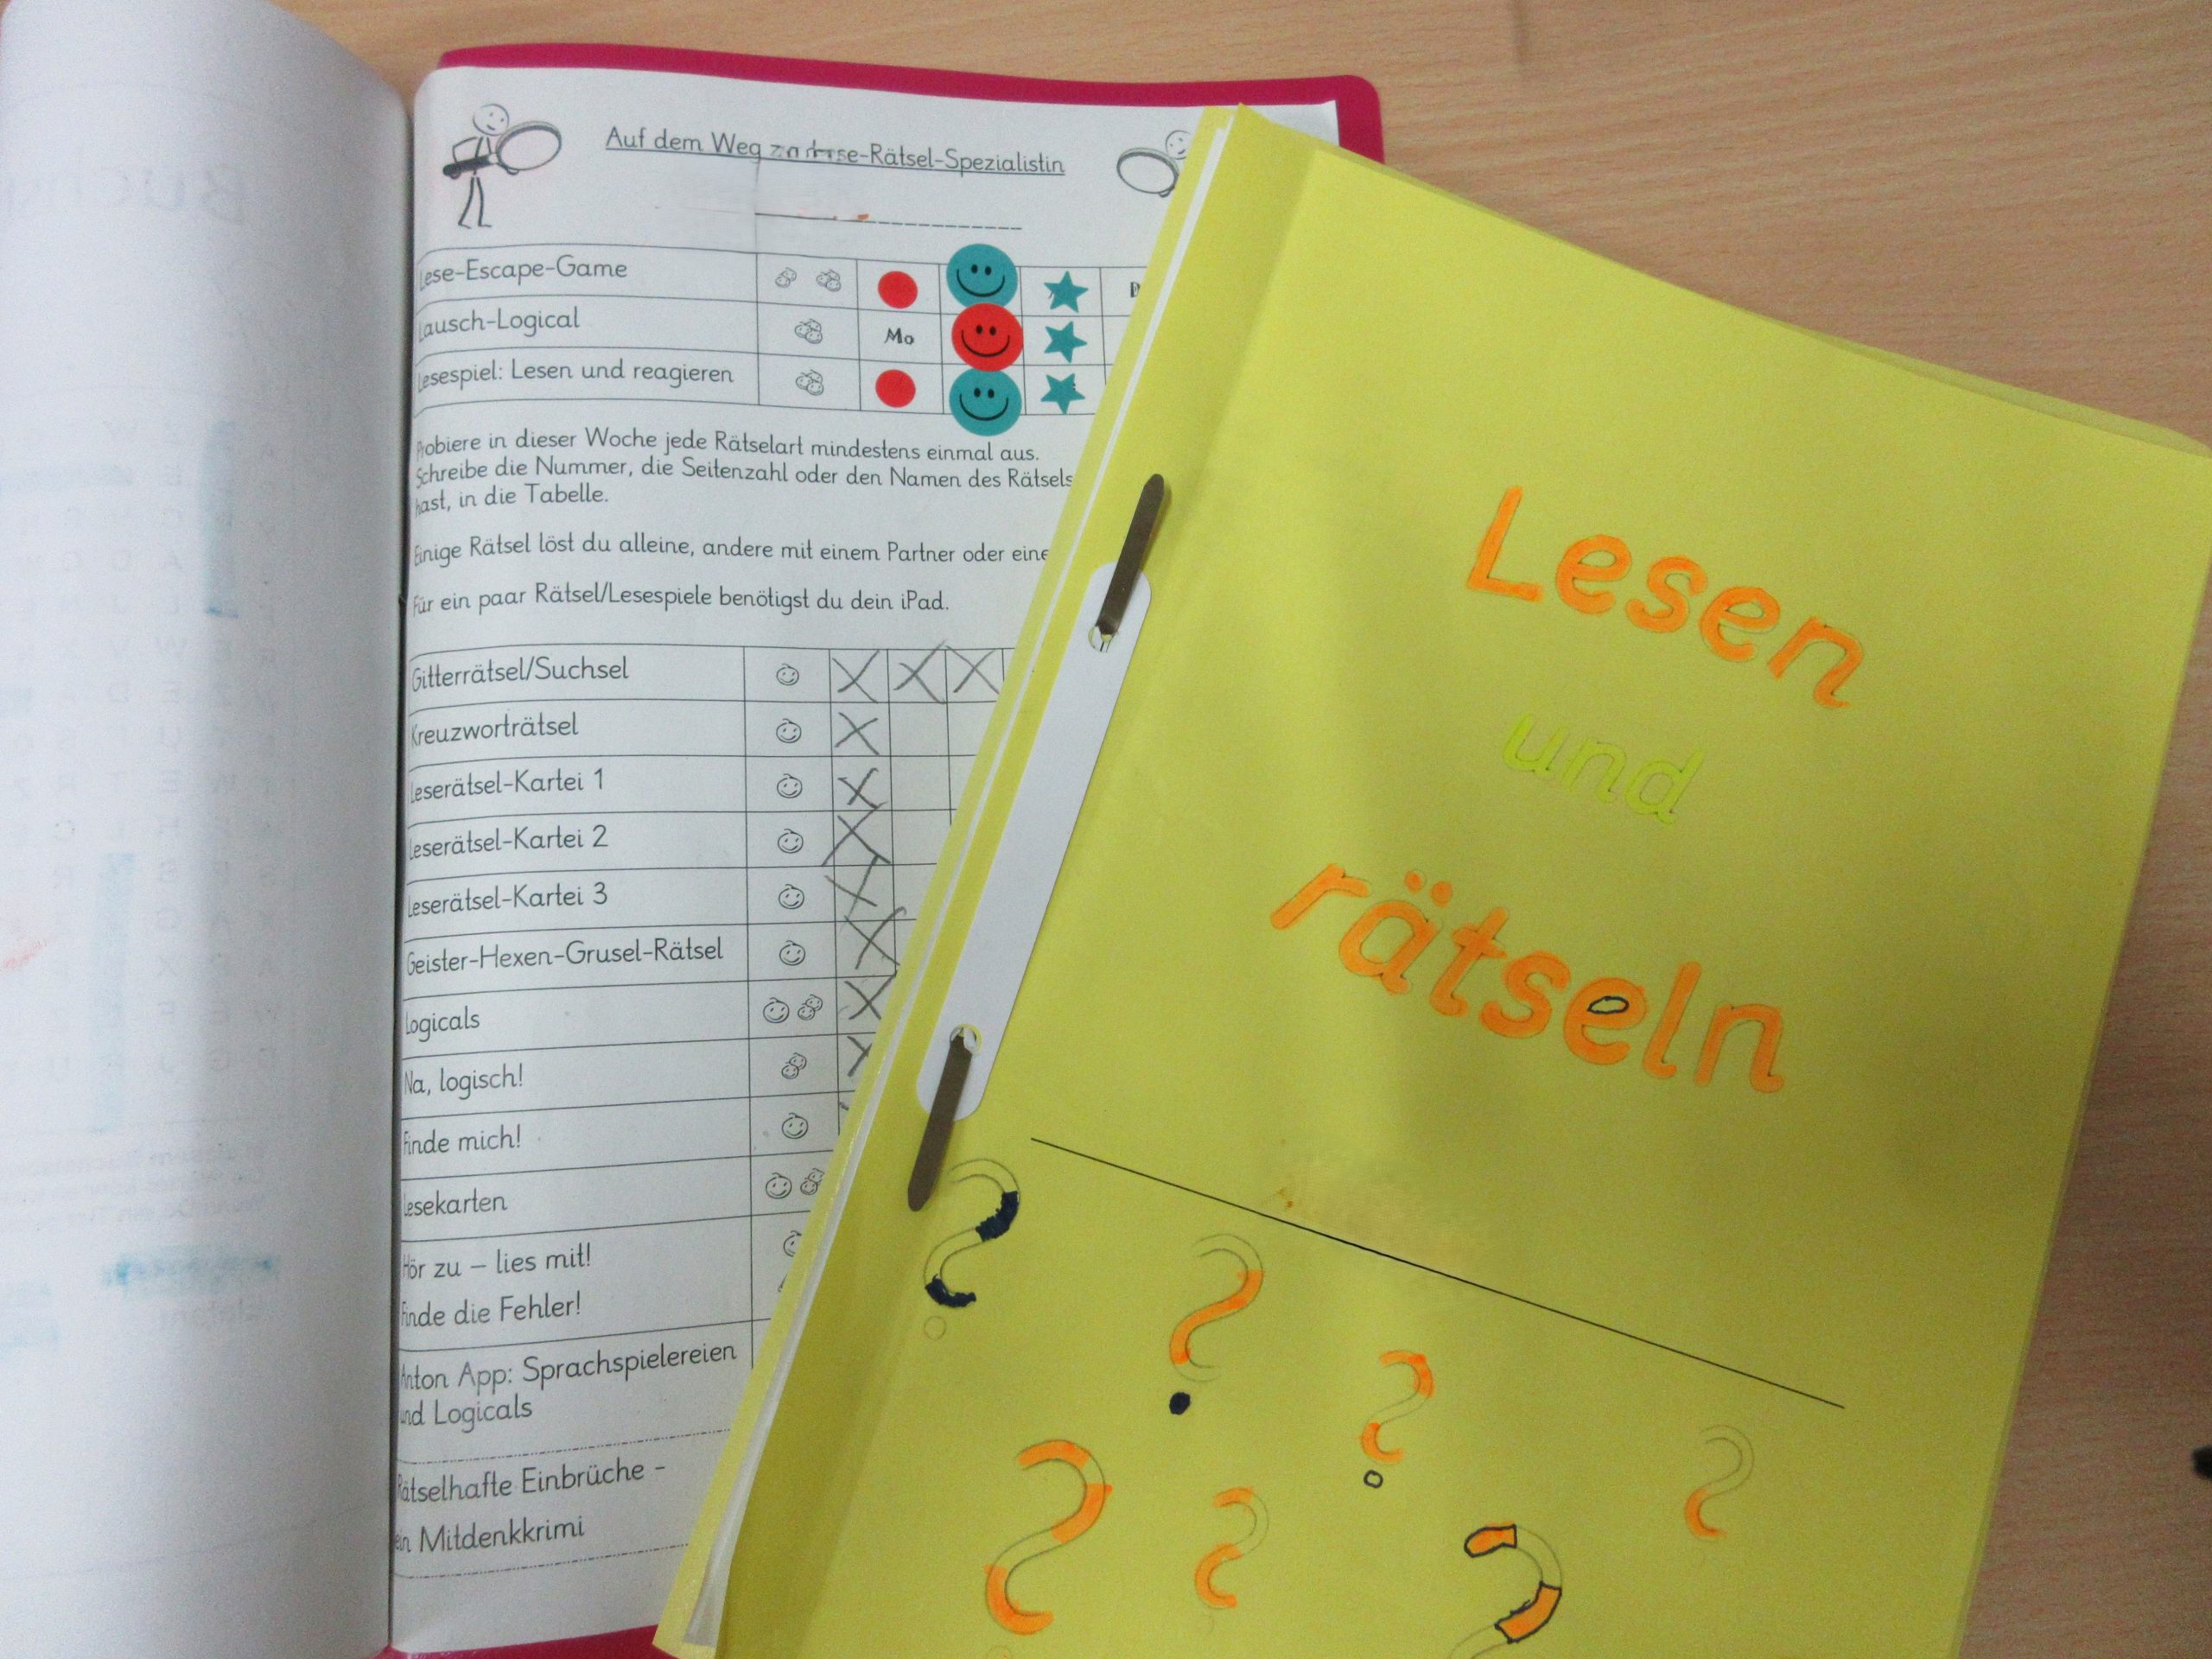 Auf dem Weg zur Lese-Rätsel-Spezialistin
Lese-Escape-Game
Lausch-Logical
Mo
Lesespiel: Lesen und reagieren
Probiere in dieser Woche jede Rätselart mindestens einmal aus.
Schreibe die Nummer, die Seitenzahl oder den Namen des Rätsels
hast, in die Tabelle.
Einige Rätsel löst du alleine, andere mit einem Partner oder eine
Für ein paar Rätsel/Lesespiele benötigst du dein iPad.
Gitterrätsel/Suchsel
Kreuzworträtsel
Leserätsel-Kartei 1
Leserätsel-Kartei 2
Leserätsel-Kartei 3
Geister-Hexen-Grusel-Rätsel
Logicals
Na, logisch!
Finde mich!
Lesekarten
Hör zu – lies mit!
Finde die Fehler!
Anton App: Sprachspielereien
und Logicals
Rätselhafte Einbrüche -
ein Mitdenkkrimi
Lesen
und
rätseln